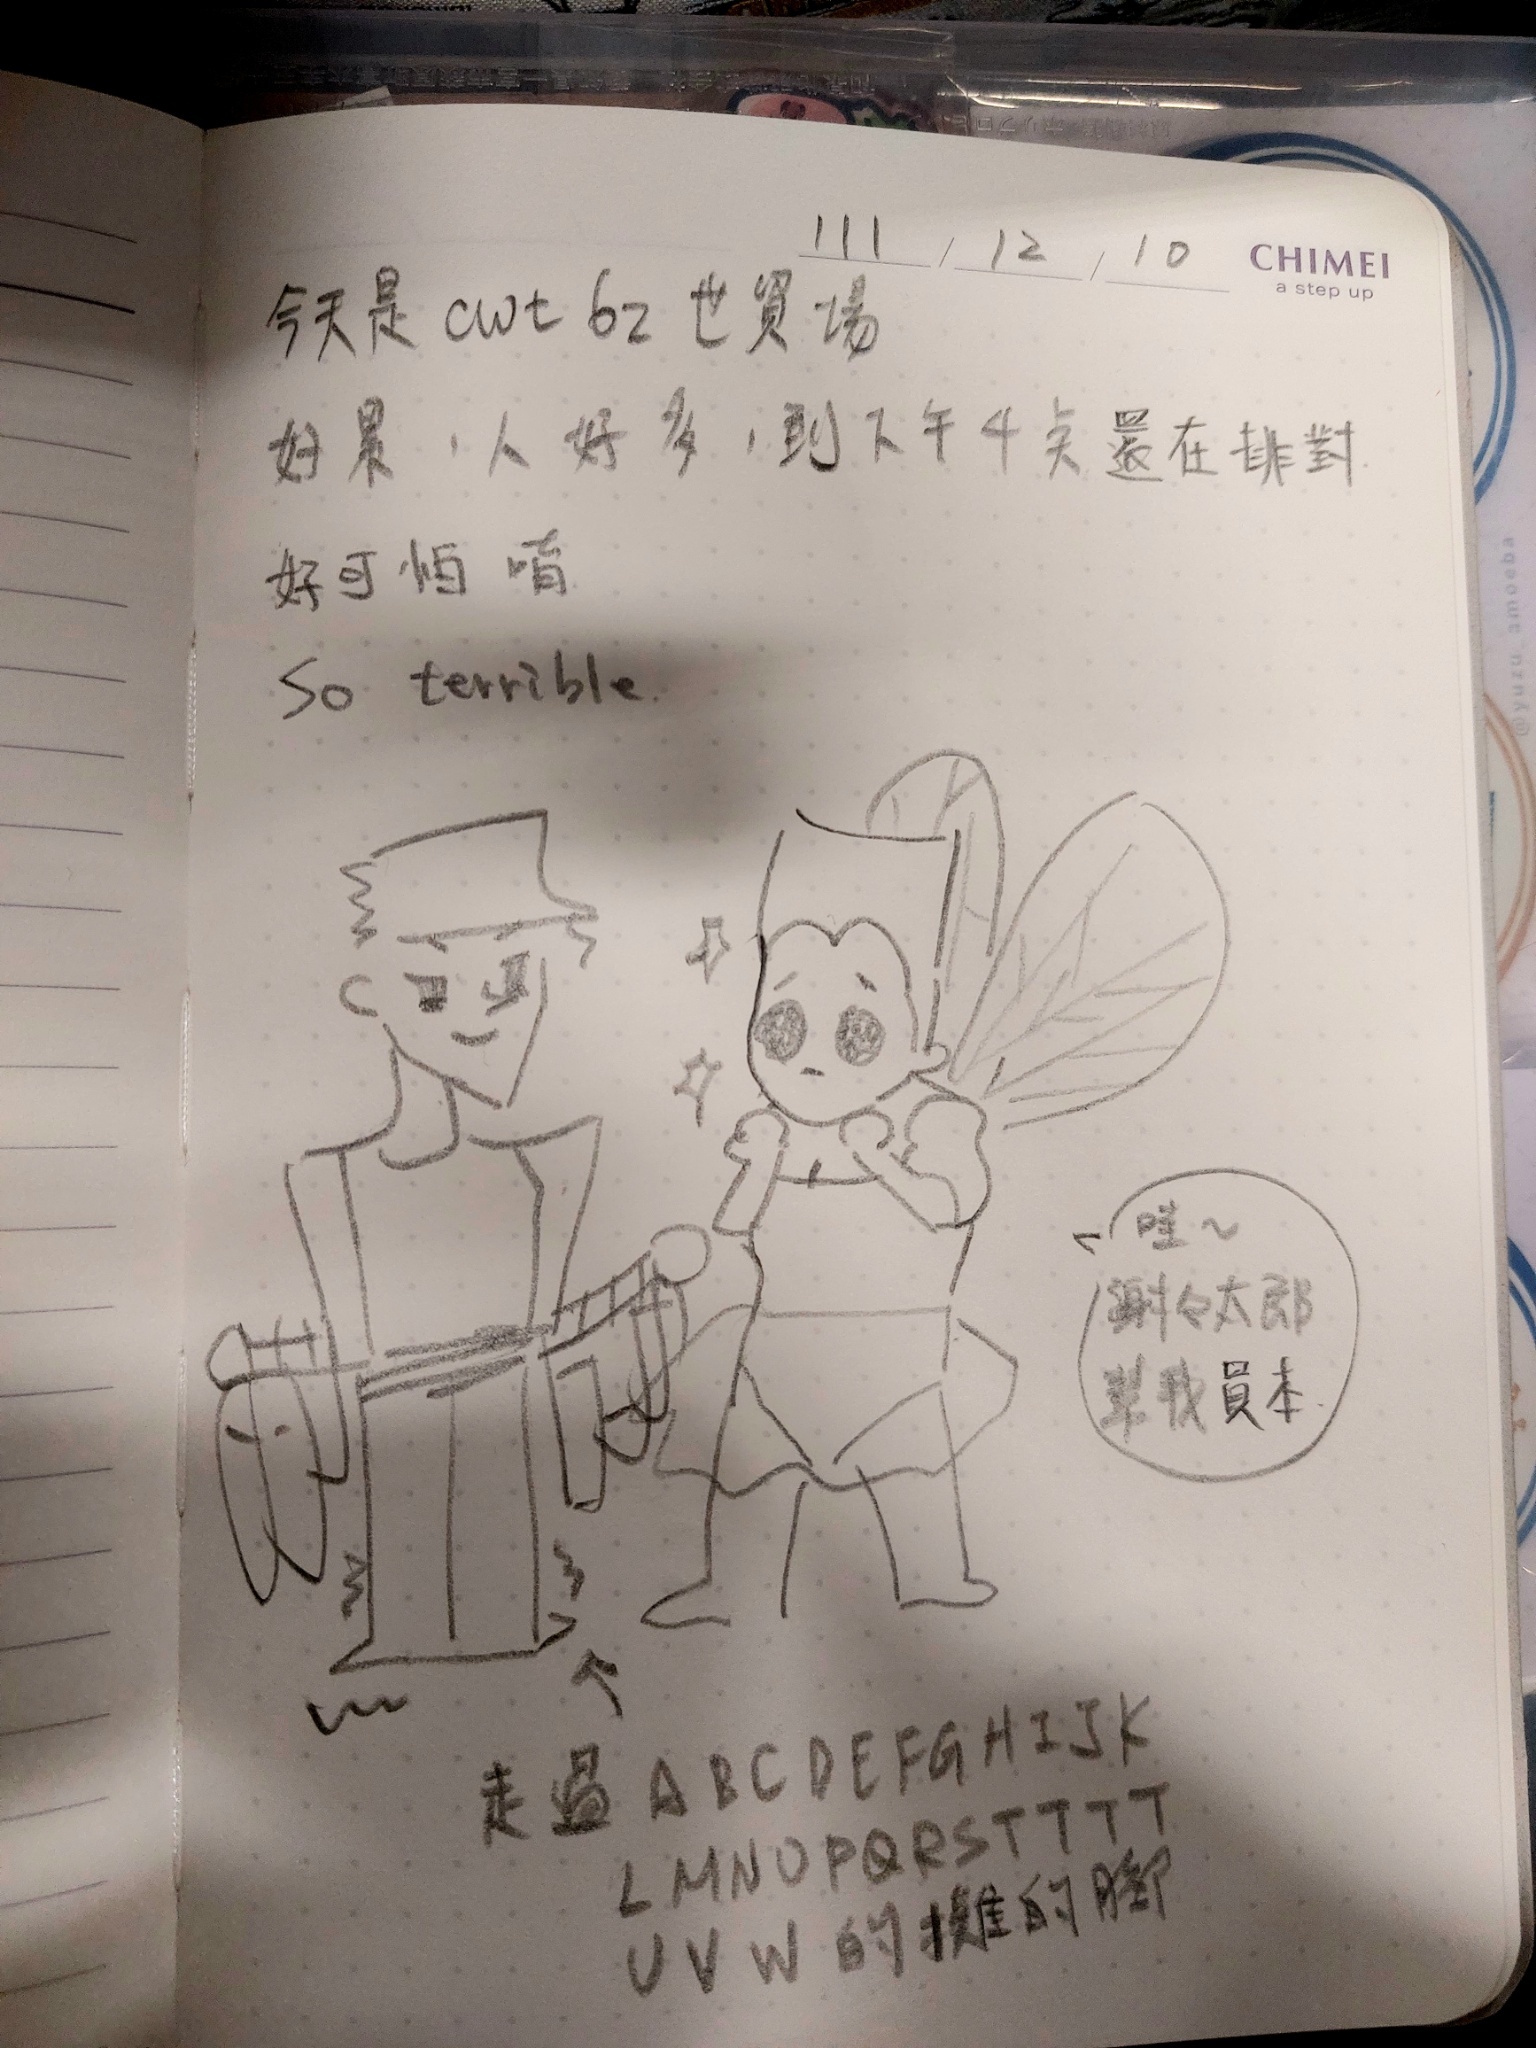 111 / 12 / 10
CHIMEI
a step up
今天是 cwt 62 世貿場
好累，人好多，到下午4点還在排對
好可怕唷
So terrible.
哇～
謝々太郎
幫我員本
走過 A B C D E F G H I J K
L M N O P Q R S T T T T
U V W 的攤的腳
@yuzu_amoeba